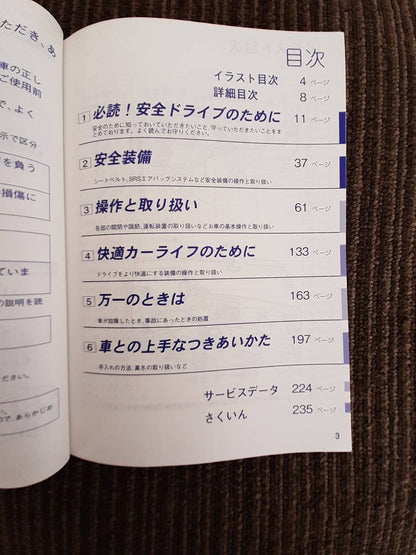 ただき、あ
車の正し
ご使用前
で、よく
示で区分
を負う
損傷に
ていま
の説明を読
ださい。
ので、あらかじめ
目次
イラスト目次 4 ページ
詳細目次 8 ページ
1 必読!安全ドライブのために 11 ページ
安全のために知っておいていただきたいこと、守っていただきたいことをま
とめてあります。よく読んでお守りください。
2 安全装備 37 ページ
シートベルト、SRSエアバッグシステムなど安全装備の操作と取り扱い
3 操作と取り扱い 61 ページ
各部の開閉や調節、運転装置の取り扱いなどお車の基本操作と取り扱い
4 快適カーライフのために 133 ページ
ドライブをより快適にする装備の操作と取り扱い
5 万一のときは 163 ページ
車が故障したとき、事故にあったときの処置
6 車との上手なつきあいかた 197 ページ
手入れの方法、真冬の取り扱いなど
サービスデータ 224 ページ
さくいん 235 ページ
3